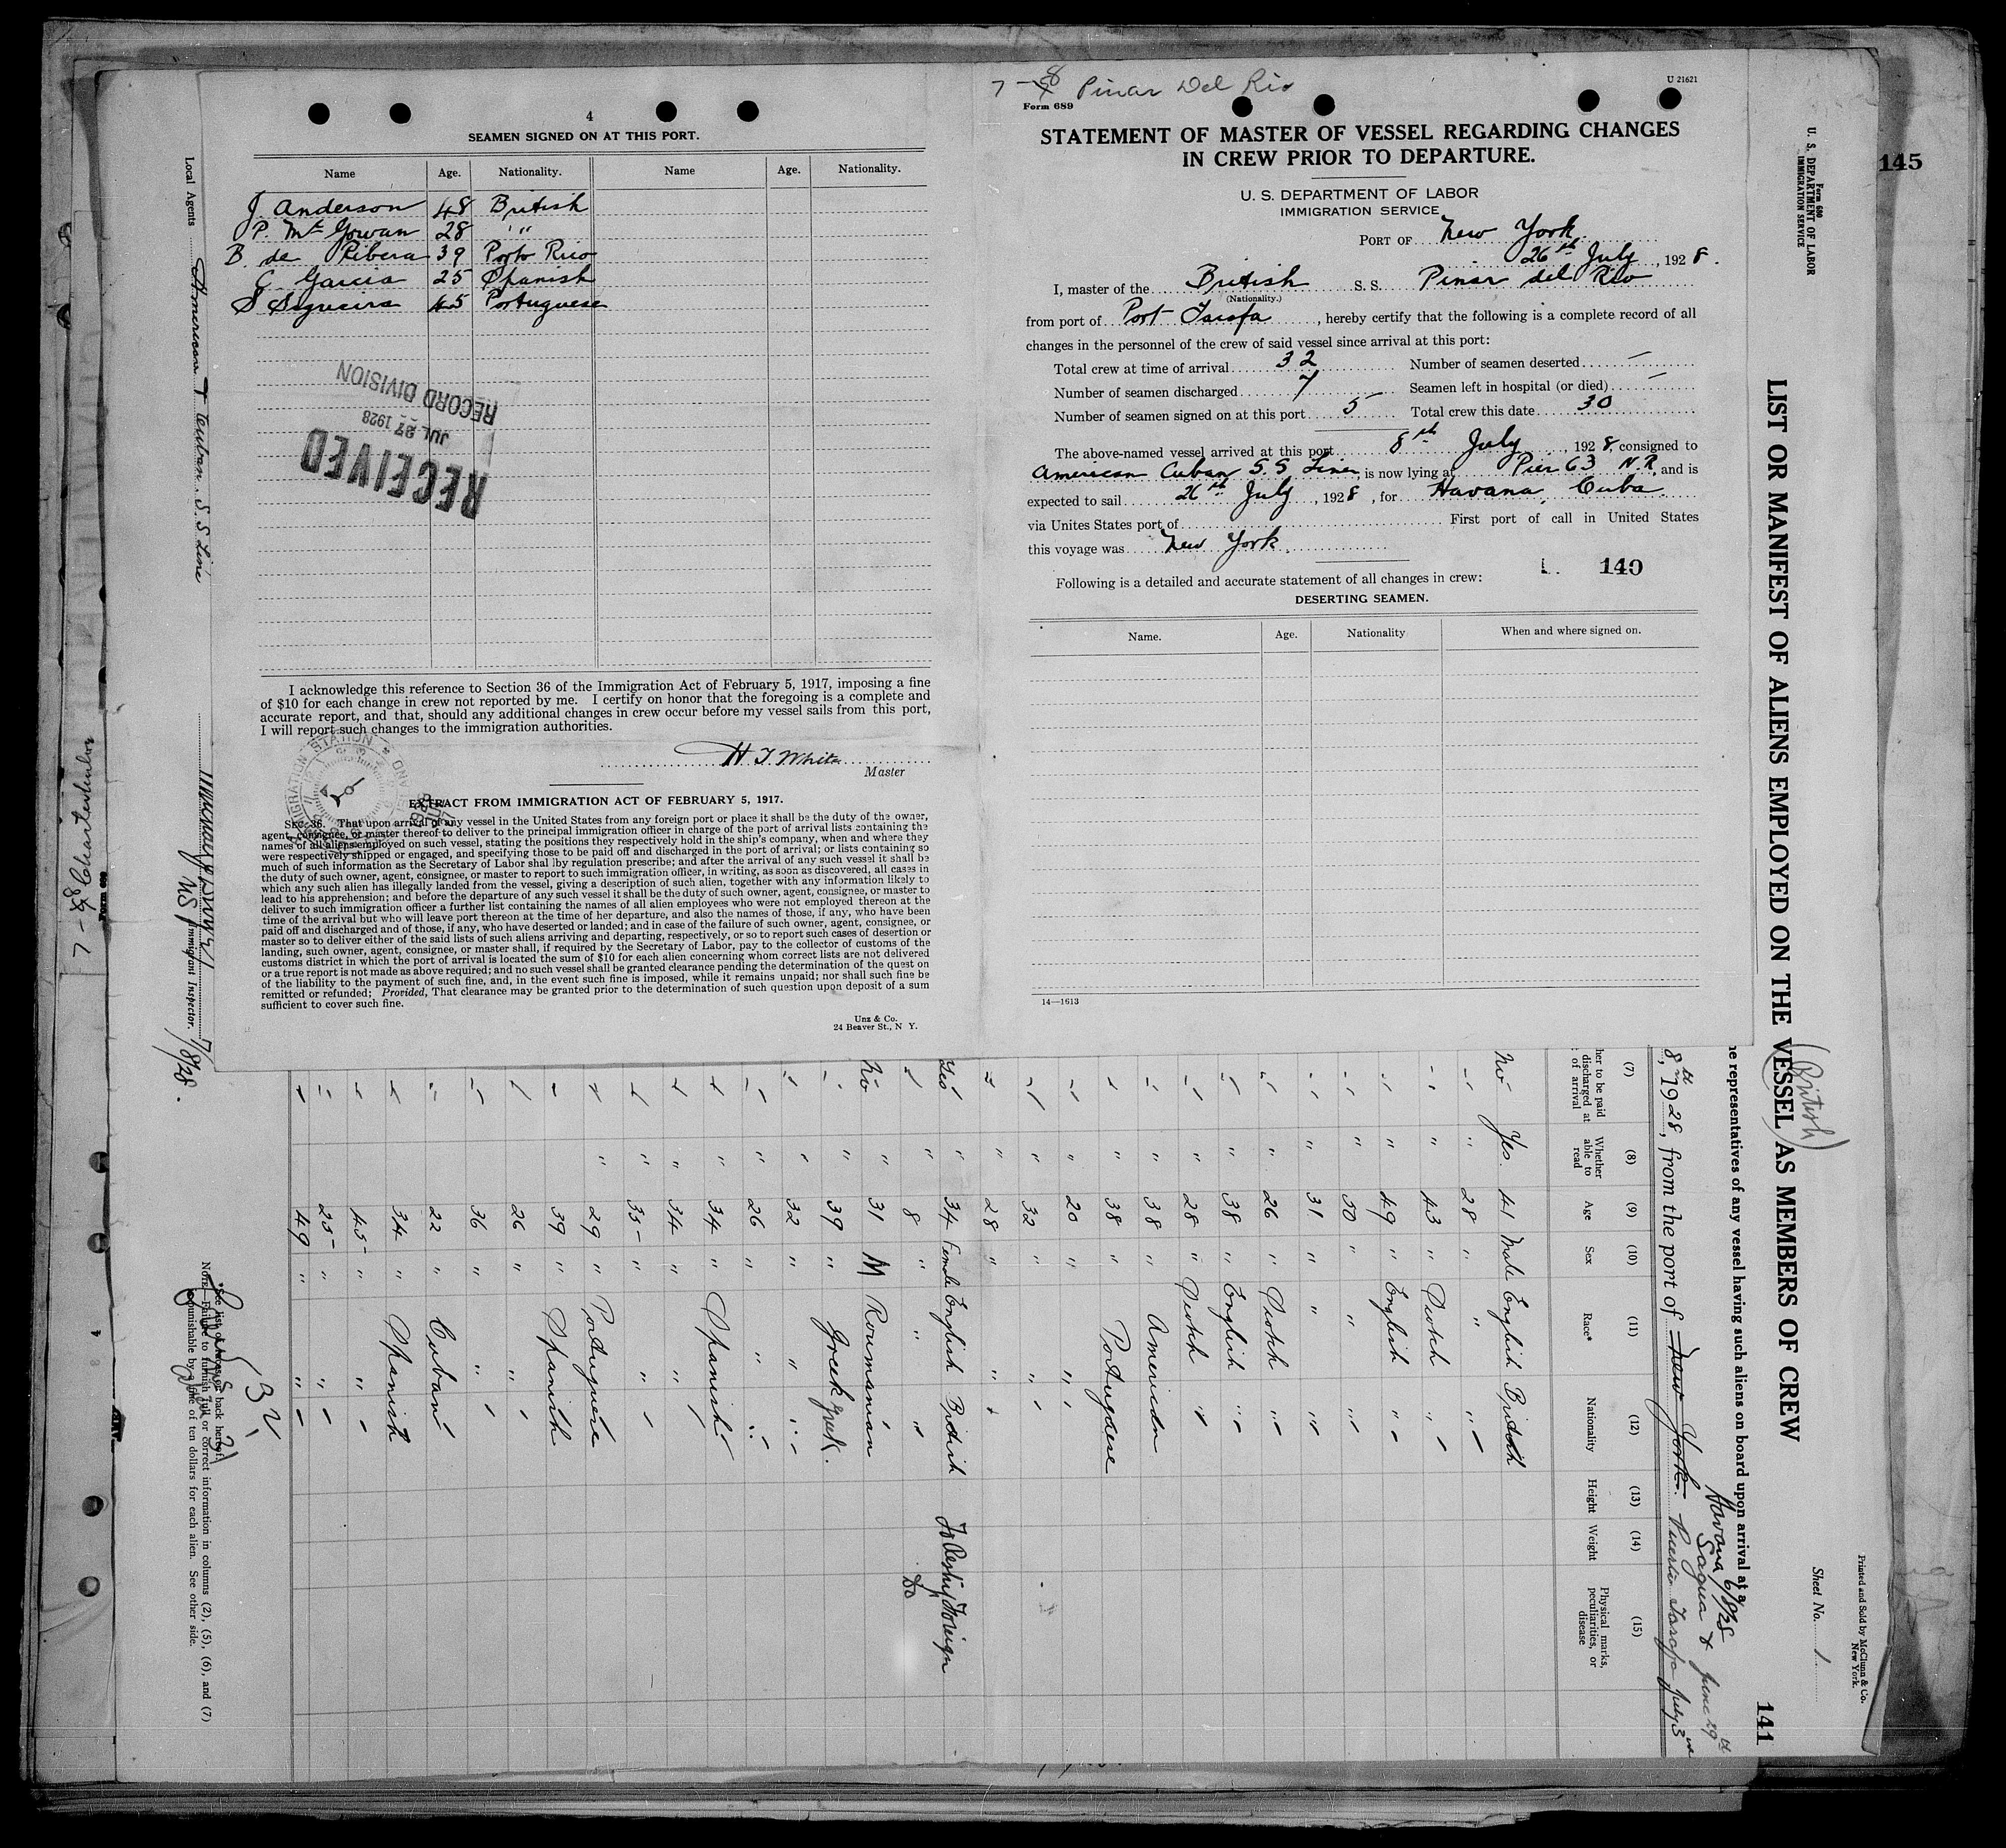 4
SEAMEN SIGNED ON AT THIS PORT.
Name Age. Nationality. Name Age. Nationality.
J. Anderson 48 British
P. Mc Gowan 28 "
B. de Ribera 39 Porto Rico
C. Garcia 25 Spanish
S Sequeira 45 Portuguese
RECORD DIVISION
JUL 27 1928
RECEIVED
I acknowledge this reference to Section 36 of the Immigration Act of February 5, 1917, imposing a fine
of $10 for each change in crew not reported by me. I certify on honor that the foregoing is a complete and
accurate report, and that, should any additional changes in crew occur before my vessel sails from this port,
I will report such changes to the immigration authorities.
H. T. White
Master
EXTRACT FROM IMMIGRATION ACT OF FEBRUARY 5, 1917.
SEC. 36. That upon arrival of any vessel in the United States from any foreign port or place it shall be the duty of the owner,
agent, consignee, or master thereof to deliver to the principal immigration officer in charge of the port of arrival lists containing the
names of all aliens employed on such vessel, stating the positions they respectively hold in the ship's company, when and where they
were respectively shipped or engaged, and specifying those to be paid off and discharged in the port of arrival; or lists containing so
much of such information as the Secretary of Labor shal lby regulation prescribe; and after the arrival of any such vessel it shall be
the duty of such owner, agent, consignee, or master to report to such immigration officer, in writing, as soon as discovered, all cases in
which any such alien has illegally landed from the vessel, giving a description of such alien, together with any information likely to
lead to his apprehension; and before the departure of any such vessel it shall be the duty of such owner, agent, consignee, or master to
deliver to such immigration officer a further list containing the names of all alien employees who were not employed thereon at the
time of the arrival but who will leave port thereon at the time of her departure, and also the names of those, if any, who have been
paid off and discharged and of those, if any, who have deserted or landed; and in case of the failure of such owner, agent, consignee, or
master so to deliver either of the said lists of such aliens arriving and departing, respectively, or so to report such cases of desertion or
landing, such owner, agent, consignee, or master shall, if required by the Secretary of Labor, pay to the collector of customs of the
customs district in which the port of arrival is located the sum of $10 for each alien concerning whom correct lists are not delivered
or a true report is not made as above required; and no such vessel shall be granted clearance pending the determination of the quest on
of the liability to the payment of such fine, and, in the event such fine is imposed, while it remains unpaid; nor shall such fine be
remitted or refunded; Provided, That clearance may be granted prior to the determination of such question upon deposit of a sum
sufficient to cover such fine.
Unz & Co.
24 Beaver St., N Y.
7-8 Pinar Del Rio
U 21621
Form 689
STATEMENT OF MASTER OF VESSEL REGARDING CHANGES
IN CREW PRIOR TO DEPARTURE.
U. S. DEPARTMENT OF LABOR
IMMIGRATION SERVICE
PORT OF New York
26th July, 1928.
I, master of the British S. S. Pinar del Rio
(Nationality.)
from port of Port Tarafa, hereby certify that the following is a complete record of all
changes in the personnel of the crew of said vessel since arrival at this port:
Total crew at time of arrival 32 Number of seamen deserted —
Number of seamen discharged 7 Seamen left in hospital (or died) —
Number of seamen signed on at this port 5 Total crew this date 30
The above-named vessel arrived at this port 8th July, 1928, consigned to
American Cuban S.S. Line, is now lying at Pier 63 N.R. and is
expected to sail 26th July, 1928, for Havana, Cuba
via Unites States port of First port of call in United States
this voyage was New York
140
Following is a detailed and accurate statement of all changes in crew:
DESERTING SEAMEN.
Name. Age. Nationality When and where signed on.
14—1613
145
Form 680
U. S. DEPARTMENT OF LABOR
IMMIGRATION SERVICE
LIST OR MANIFEST OF ALIENS EMPLOYED ON THE VESSEL AS MEMBERS OF CREW
(British)
Sheet No. 1
Printed and Sold by McClunn & Co.
New York.
141
he representatives of any vessel having such aliens on board upon arrival at a
8th, 1928, from the port of New York. Puerto Tarafa July 3rd
Havana 6/8/28
Sagua & June 29th
(7) (8) (9) (10) (11) (12) (13) (14) (15)
her to be paid discharged at of arrival Whether able to read Age Sex Race* Nationality Height Weight Physical marks, peculiarities, or disease
No Yes 41 Male English British
" " 28 " " "
" " 43 " Scotch "
" " 49 " English "
" " 50 " " "
" " 31 " " "
" " 26 " Scotch "
" " 38 " English "
" " 28 " Scotch "
" " 38 " American
" " 38 " Portuguese
" " 20 " " "
" " 32 " " "
" " 28 " " "
Yes " 34 Female English British To Reship Foreign
" " 8 " " " Do
No " 31 M Roumanian
" " 39 " Greek Greek.
" " 32 " " "
" " 26 " " "
" " 34 " Spanish
" " 34 " " "
" " 35 " " "
" " 29 " Portuguese
" " 39 " Spanish
" " 26 " " "
" " 36 " " "
" " 22 " Cuban
" " 34 " Spanish
" " 45 " " "
" " 25 " " "
" " 49 " " "
32
31
*See list of races on back hereof.
NOTE—Failure to furnish full or correct information in columns (2), (5), (6), and (7)
is punishable by a fine of ten dollars for each alien. See other side.
Local Agents American & Cuban S. S. Line
Immigrant Inspector.
7/8/28.
7-8
Form 689